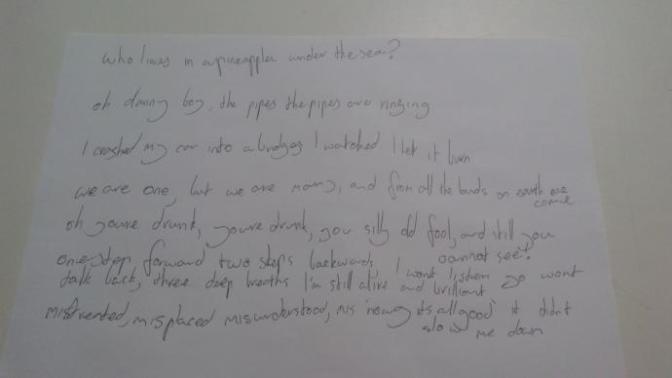 who lives in a pineapple under the sea?
oh danny boy, the pipes the pipes are ringing
I crashed my car into a bridge I watched I let it burn
we are one, but we are many, and from all the lands on earth we
come
oh you're drunk, you're drunk, you silly old fool, and still you
cannot see!
one step forward two steps backwards I won't listen go won't
talk back, three deep breaths I'm still alive and brilliant
mistreated, misplaced misunderstood, mis its all good it didn't
slow me down